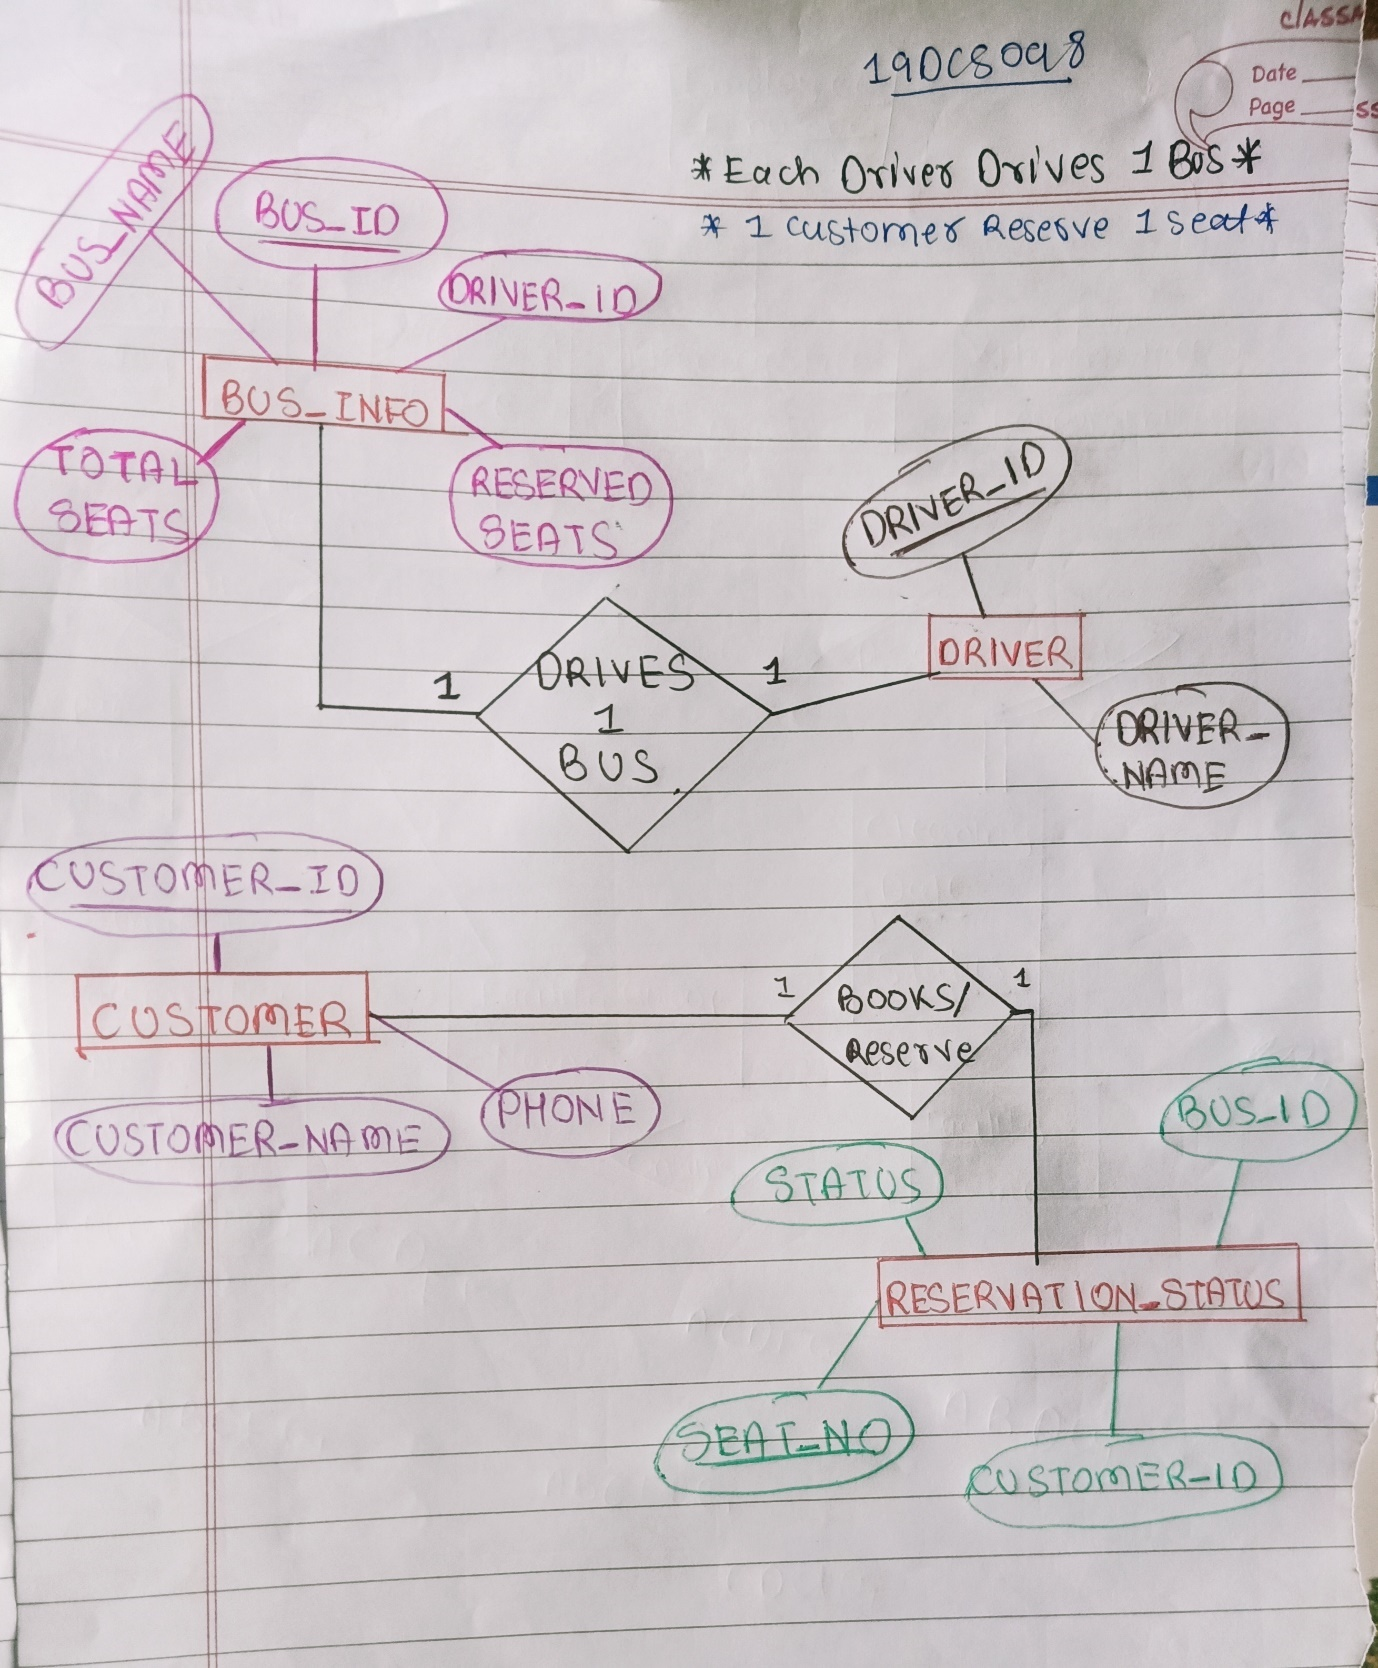 classm
19DCS098
Date
Page
*Each Driver Drives 1 Bus*
* 1 Customer Reserve 1 seat*
BUS_NAME
BUS_ID
DRIVER_ID
BUS_INFO
TOTAL
SEATS
RESERVED
SEATS
DRIVER_ID
DRIVER
DRIVER_
NAME
1
DRIVES
1
BUS
1
CUSTOMER_ID
CUSTOMER
CUSTOMER_NAME
PHONE
1
BOOKS/
Reserve
1
BUS_ID
STATUS
RESERVATION_STATUS
SEAT_NO
CUSTOMER_ID